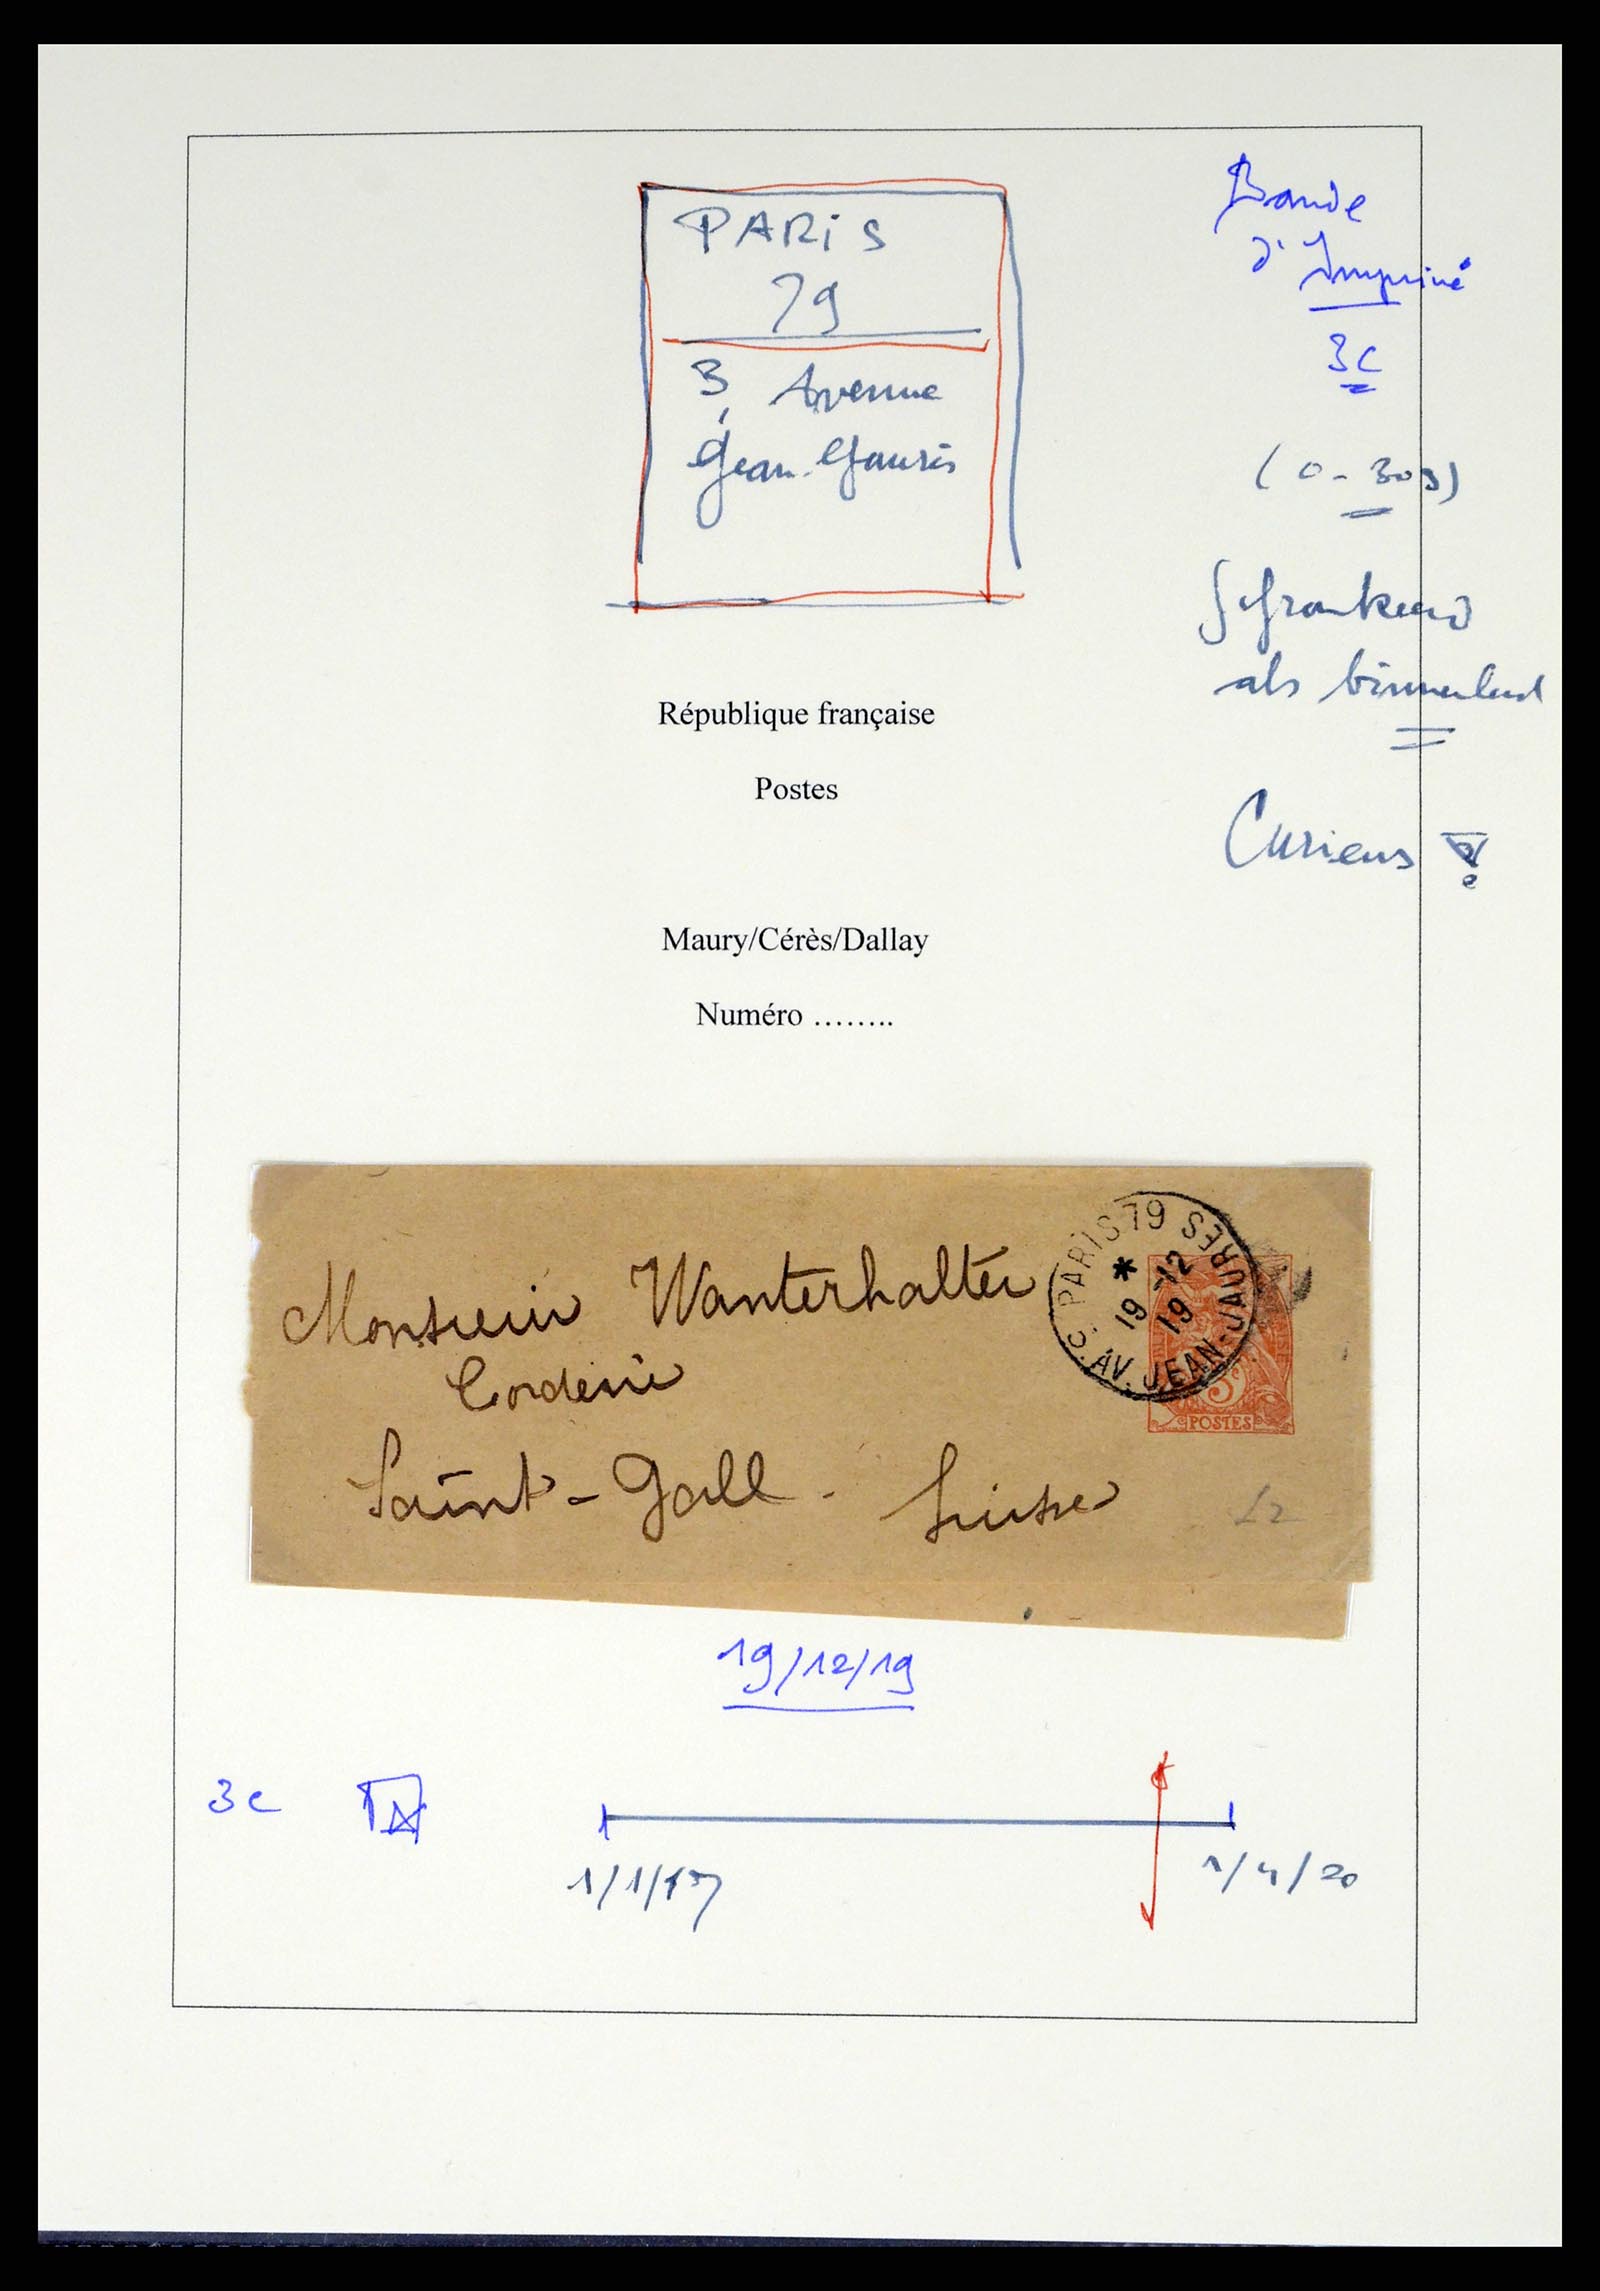 PARiS
79
3, Avenue
Jean-Jaurès
Bande
d'Imprimé
3c
(0-30g)
gefrankeerd
als binnenland
Curieus
République française
Postes
Maury/Cérès/Dallay
Numéro ........
Monsieur Wanterhalter
Corderie
Saint-Gall - Suisse
PARIS 79
*
19 -12
19
C. AV. JEAN-JAURES
POSTES
19/12/19
3c
1/1/17
1/4/20